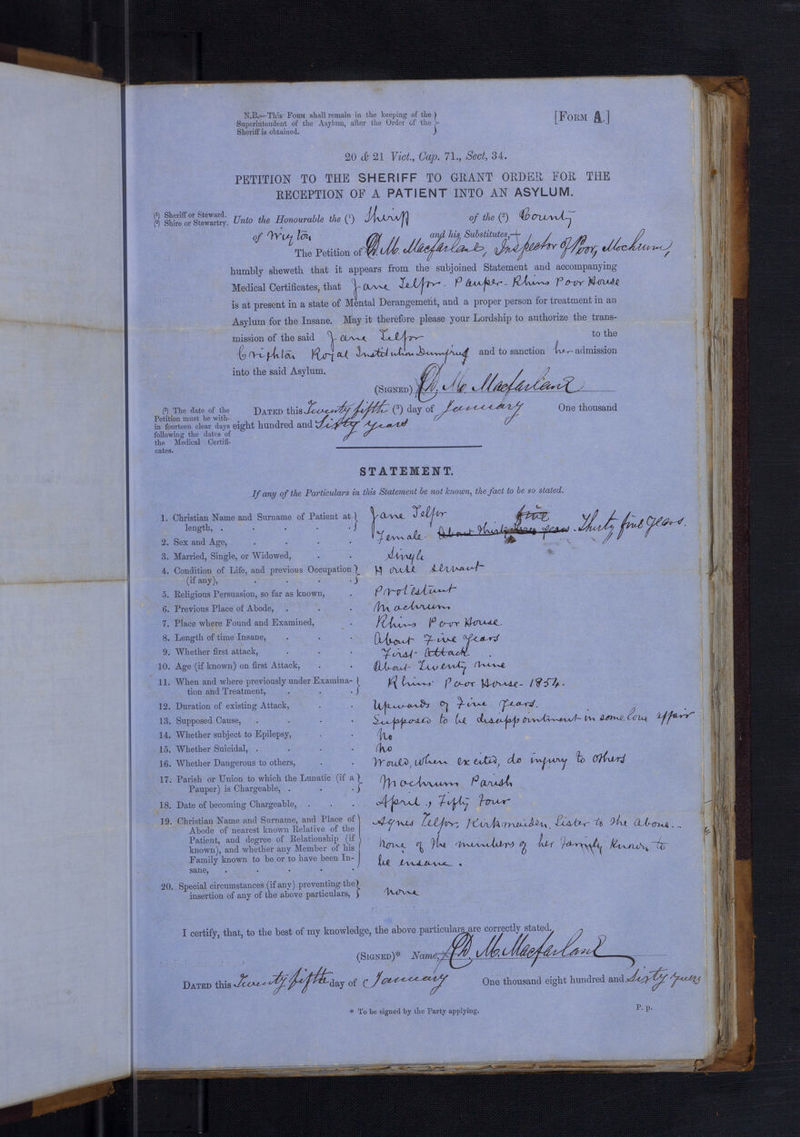 N.B.—This FORM shall remain in the keeping of the
Superintendent of the Asylum, after the Order of the
Sheriff is obtained.
[FORM A.]
20 & 21 Vict., Cap. 71., Sect, 34.
PETITION TO THE SHERIFF TO GRANT ORDER FOR THE
RECEPTION OF A PATIENT INTO AN ASYLUM.
(1) Sheriff or Steward.
(2) Shire or Stewartry.
Unto the Honourable the (1) Sheriff of the (2) County
of Wigton and his Substitutes,—
The Petition of Macfarlane, Inspector of Poor, Mochrum,
humbly sheweth that it appears from the subjoined Statement and accompanying
Medical Certificates, that Jane Telfor - Pauper - Rhins Poor House
is at present in a state of Mental Derangement, and a proper person for treatment in an
Asylum for the Insane. May it therefore please your Lordship to authorize the trans-
mission of the said Jane Telfor to the
Crichton Royal Institution Dumfries and to sanction her admission
into the said Asylum.
(SIGNED) Macfarlane
(3) The date of the
Petition must be with-
in fourteen clear days
following the dates of
the Medical Certifi-
cates.
DATED this Twenty fifth (3) day of January One thousand
eight hundred and Sixty years
STATEMENT.
If any of the Particulars in this Statement be not known, the fact to be so stated.
1. Christian Name and Surname of Patient at length, . Jane Telfor
2. Sex and Age, Female About Thirty five years. Thirty five years.
3. Married, Single, or Widowed, Single
4. Condition of Life, and previous Occupation (if any), House Servant
5. Religious Persuasion, so far as known, Protestant
6. Previous Place of Abode, Mochrum
7. Place where Found and Examined, Rhins Poor House
8. Length of time Insane, About Five years
9. Whether first attack, First attack.
10. Age (if known) on first Attack, About Twenty nine
11. When and where previously under Examina-
tion and Treatment, Rhins Poor House - 1854.
12. Duration of existing Attack, Upwards of Five years.
13. Supposed Cause, Supposed to be disappointment in some love affair
14. Whether subject to Epilepsy, No
15. Whether Suicidal, No
16. Whether Dangerous to others, Would, when excited, do injury to others
17. Parish or Union to which the Lunatic (if a
Pauper) is Chargeable, Mochrum Parish
18. Date of becoming Chargeable, April, Fifty four
19. Christian Name and Surname, and Place of
Abode of nearest known Relative of the
Patient, and degree of Relationship (if
known), and whether any Member of his
Family known to be or to have been In-
sane, Agnes Telfor, Kirkmaiden, Sister to the above. -
None of the members of her family known to
be insane.
20. Special circumstances (if any) preventing the
insertion of any of the above particulars, None
I certify, that, to the best of my knowledge, the above particulars are correctly stated.
(SIGNED)* Name, Macfarlane
DATED this Twenty fifth day of January One thousand eight hundred and Sixty years
* To be signed by the Party applying.
P. p.